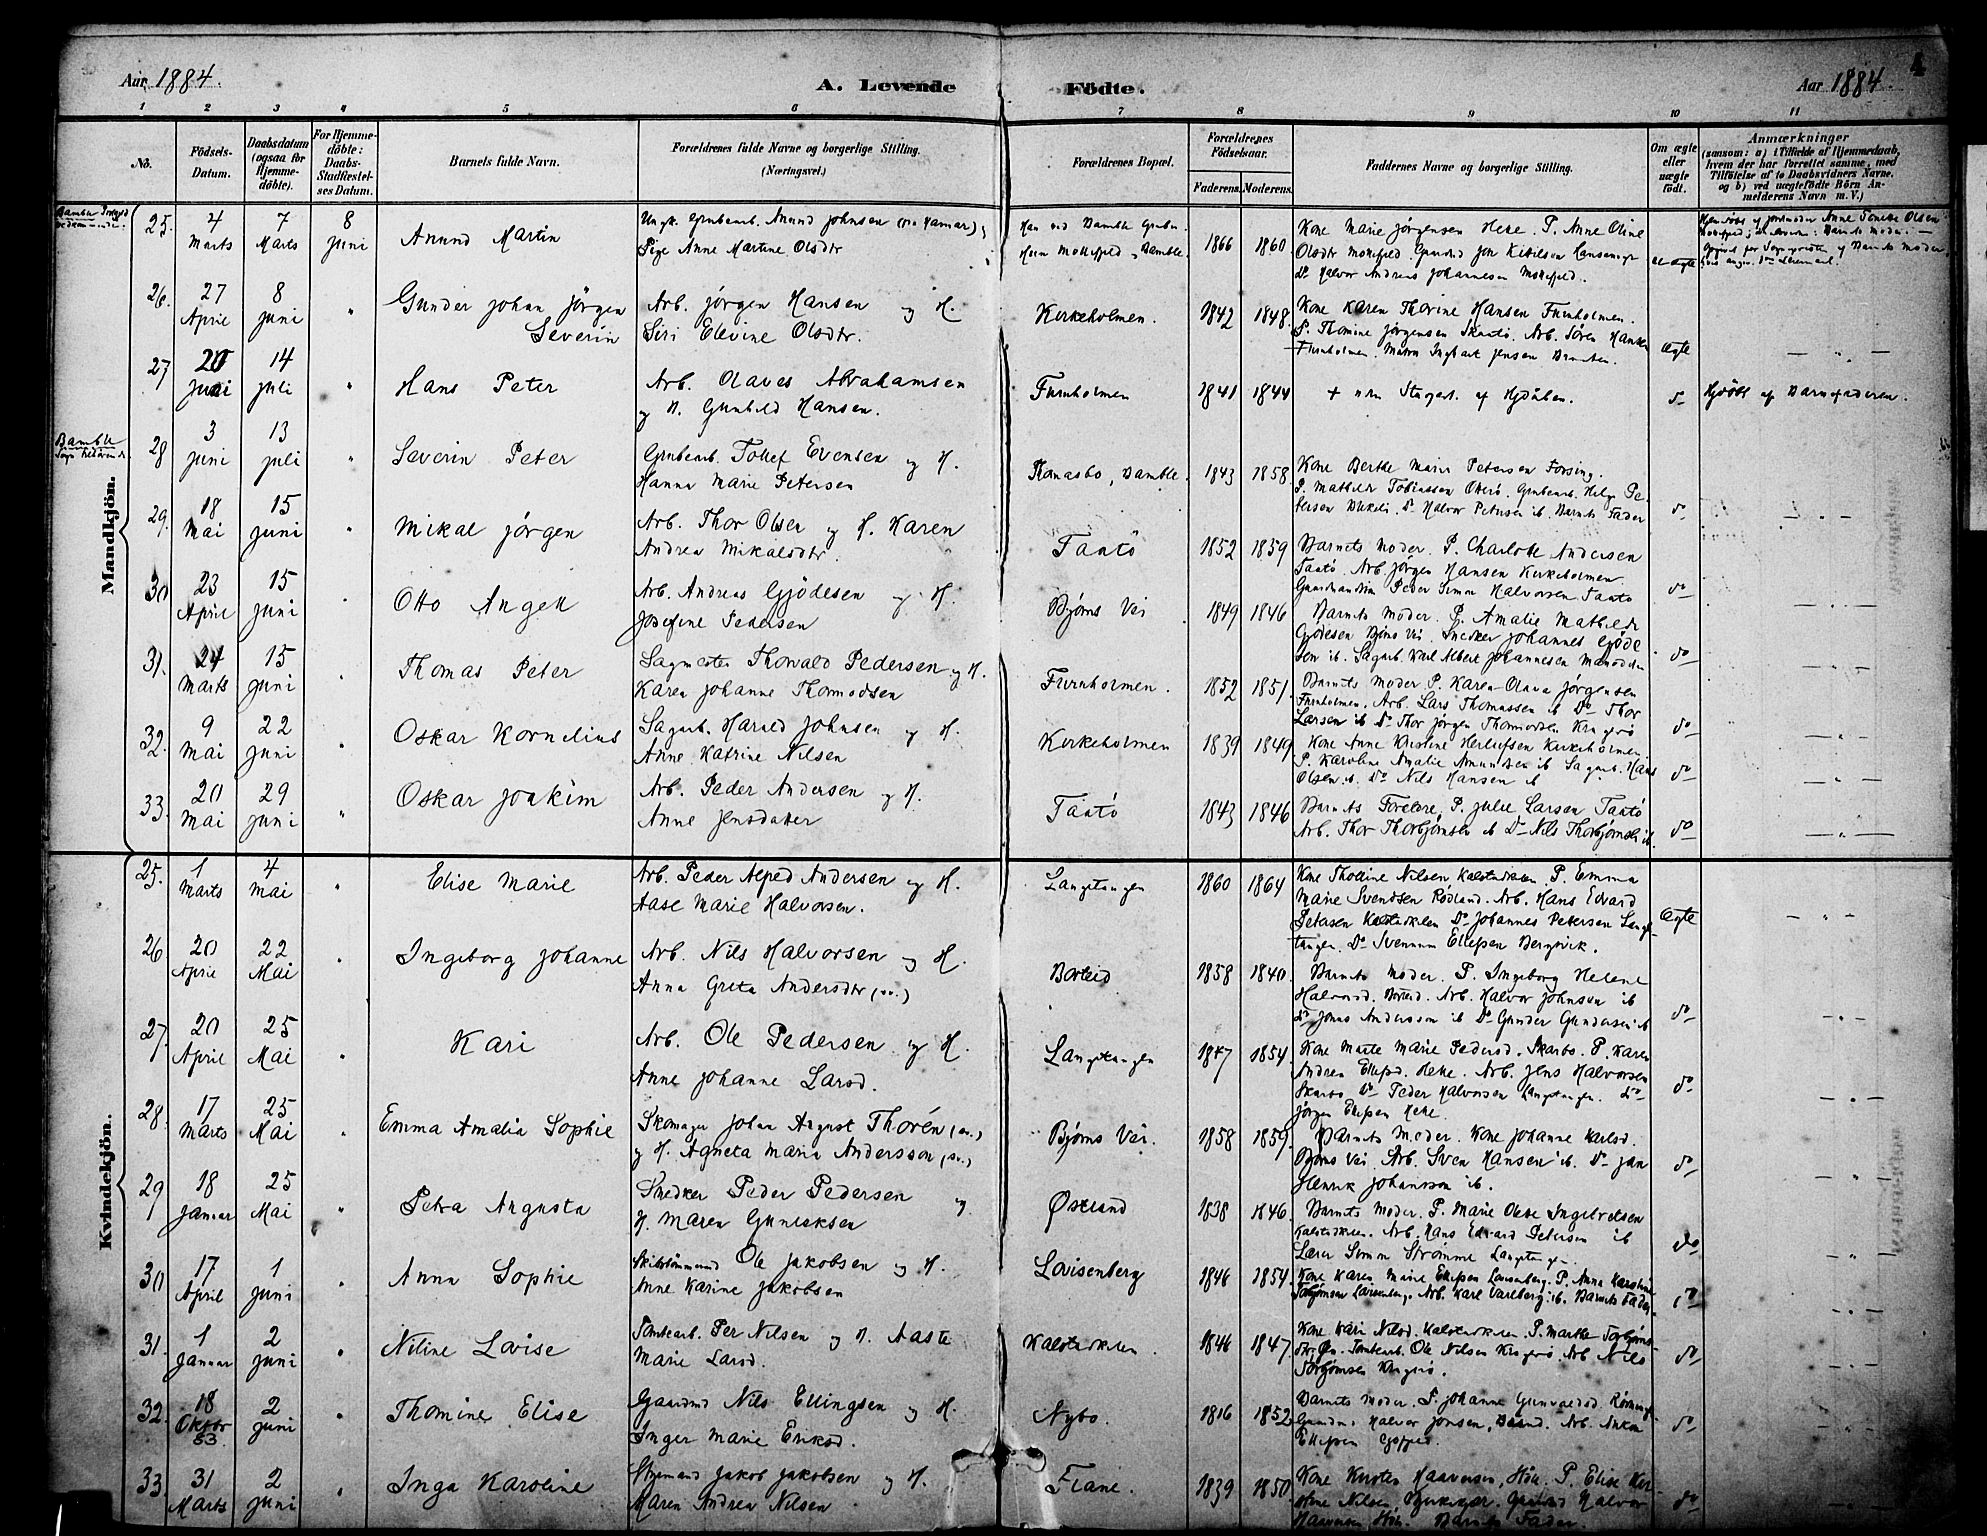 Aar 1884. A. Levende Fødte. Aar 1884. 4
1 2 3 4 5 6 7 8 9 10 11
No. Fødsels-Datum. Daabsdatum (ogsaa for Hjemmedöbte). For Hjemmedöbte: Daabs-Stadfæstelses Datum. Barnets fulde Navn. Forældrenes fulde Navne og borgerlige Stilling. (Næringsvei.) Forældrenes Bopæl. Forældrenes Födselsaar. Faderens. Moderens. Faddernes Navne og borgerlige Stilling. Om ægte eller uægte födt. Anmærkninger (saasom: a) i Tilfælde af Hjemmedaab, hvem der har forrettet samme, med Tilföielse af to Daabsvidners Navne, og b) ved uægtefödte Börn Anmelderens Navn m. V.)
Mandkjön.
25. 4 Marts 7 Marts 8 Juni Anund Martin Ungk. Grubearb. Anund Johnsen
Pige Anne Martine Olsdtr 1866 1860 Kone Marie Jørgensen Hekke. P. Anne Oline
uægte
26. 27 April 8 Juni " Gunder Johan Jörgen Severin Arb. Jörgen Hansen og H.
Siri Elevine Olsdtr. Kirkeholmen. 1842 1848. Kone Karen Thorine Hansen Furuholmen.
P. Thomine Jørgensen Skaatö. Arb. Sören Hansen
Furuholmen. ægte — " —
27 20 Juni 14 Juli " Hans Peter Arb. Olaves Abrahamsen
og H. Gunhild Hansen. Furuholmen 1841 1844 Hjdöbt af Barnefaderen.
Bamble
28 3 Juni 13 Juli " Severin Peter Grubearb. Tollef Evensen og H.
Hanna Marie Petersen Bamble. 1843 1858. Kone Berthe Marie Petersen
P. Mathilde Tobiassen Grubearb. Helge Petersen
Do Halvor Petersen ib. Barnets Fader do — " —
29. 18 Mai 15 Juni " Mikal Jörgen Arb. Thor Olsen og H. Karen
Andrea Mikalsdtr. Taatö 1852 1859 Barnets Moder. P. Charlotte Andersen
Taatö. Arb. Jørgen Hansen Kirkeholmen.
Peder Simon Halvorsen Taatö do
30 23 April 15 Juni Otto Angell Arb. Andreas Gjödesen og H.
Josefine Pedersen Bjørns Vei 1849 1846 Barnets Moder. P. Amalie Mathilde
Gjödesen Bjørns Vei. Snedker Johannes Gjödesen
ib. Sagarb. Karl Albert Johannesen do — " —
31. 24 Marts 15 Juni " Thomas Peter Sagmester Thorvald Pedersen og H.
Karen Johanne Thormodsen Furuholmen. 1852 1851. Barnets Moder. P. Karen Olava Jørgensen
Furuholmen. Arb. Lars Thomassen ib Do Thor
Larsen ib Do Thor Jørgen Thormodsen Kragerö do — " —
32. 9 Mai 22 Juni " Oskar Kornelius Sagarb. Harald Johnsen og H.
Anne Katrine Nilsen Kirkeholmen 1839 1849 Kone Anne Kristine Herlufsen Kirkeholmen
P. Karoline Amalie Amundsen ib Sagarb. Hans
Olsen ib. Do Nils Hansen ib do — " —
33. 20 Mai 29 Juni " Oskar Joakim Arb. Peder Andersen og H.
Anne Jensdatter Taatö 1843 1846 Barnets Forældre, P. Julie Larsen Taatö
Arb. Thor Thorbjørnsen ib Do Nils Thorbjørnsen ib. do — " —
Kvindekjön.
25. 1 Marts 4 Mai " Elise Marie Arb. Peder Alfred Andersen og H.
Aase Marie Halvorsen. Langtangen 1860 1864 Kone Tholline Nilsen Kalstadkilen P. Emma
Marie Svendsen Rödland. Arb. Hans Edvard
Petersen Kalstadkilen Do Johannes Petersen Langtangen.
Do Svennum Ellefsen Bergvik. ægte — " —
26 20 April 22 Mai " Ingeborg Johanne Arb. Nils Halvorsen og H.
Anna Greta Andersdtr (sv.) Borteid 1858 1840. Barnets Moder. P. Ingeborg Helene
Halvorsd. Borteid. Arb. Halvor Johnsen ib
Do Jonas Andersson ib Do Gunder Gundersen ib do — " —
27. 20 April 25 Mai " Kari Arb. Ole Pedersen og H.
Anne Johanne Larsd. Langtangen 1847 1854. Kone Marte Marie Pedersd. Skarbo. P. Karen
Andrea Ellefsd. Hekke. Arb. Jens Halvorsen
Skarbo Do Peder Halvorsen Langtangen. Do
Jørgen Ellefsen Hekke. do — " —
28. 17 Marts 25 Mai " Emma Amalia Sophie Skomager Johan August Thorén (sv.)
og H. Agneta Maria Andersson (sv.) Bjørns Vei. 1858 1859. Barnets Moder. Kone Johanne Karlsd.
Bjørns Vei. Arb. Sven Hansen ib. Do Jan
Henrik Johansson ib. do — " —
29 18 Januar 25 Mai " Petra Augusta Snedker Peder Pedersen og
H. Maren Gunleiksen Østerud 1838 1846. Barnets Moder. P. Marie Olette Ingebretsen
Kalstadkilen. Arb. Hans Edvard Petersen ib
Lærer Simon Strømme Langtangen. do — " —
30 17 April 1 Juni " Anna Sophie Skibstømmermd Ole Jakobsen og H.
Anne Karine Jakobsen Lovisenberg 1846 1854. Kone Karen Marie Ellefsen Lovisenberg. P. Anna Karoline
Torbjørnsen Lovisenberg. Arb. Karl Carlberg ib. Barnets Fader. do — " —
31. 1 Januar 2 Juni " Niline Lovise Tomtearb. Per Nilsen og H. Aaste
Marie Larsd. Kalstadkilen. 1846 1847. Kone Kari Nilsd. Kalstadkilen. P. Marthe Torbjørnsdtr.
Tomtearb. Ole Nilsen Kragerö. Arb. Nils
Torbjørnsen Kragerö. do — " —
32. 18 Oktbr 83. 2 Juni " Thomine Elise Gaardmd Nils Ellingsen og H.
Inger Marie Eriksd. Nybo. 1816 1852 Barnets Moder. P. Johanne Gunvaldsd.
Gaardmd Halvor Jonsen, Arb. Anton
Ellefsen do — " —
33. 31 Marts 2 Juni " Inga Karoline Styrmand Jakob Jakobsen og H.
Maren Andrea Nilsen Fiane. 1839 1850. Kone Kirsten Haavorsen, P. Elise
Nilsen, Gaardmd Halvor
Haavorsen Barnets Fader. do